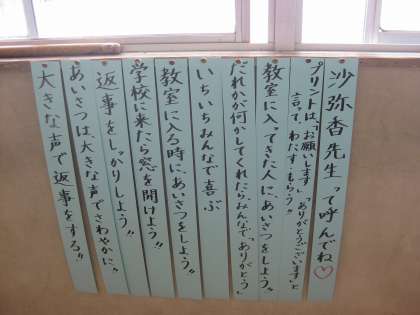 沙弥香先生って呼んでね♡
プリントは、「お願いします」「ありがとうございます」と
言って、わたす・もらう!!
教室に入ってきた人に、あいさつをしよう。
だれかが何かしてくれたらみんなで、「ありがとう」
いちいちみんなで喜ぶ
教室に入る時に、あいさつをしよう。
学校に来たら窓を開けよう!!
返事をしっかりしよう!!
あいさつは大きな声でさわやかに!!
大きな声で返事をする!!